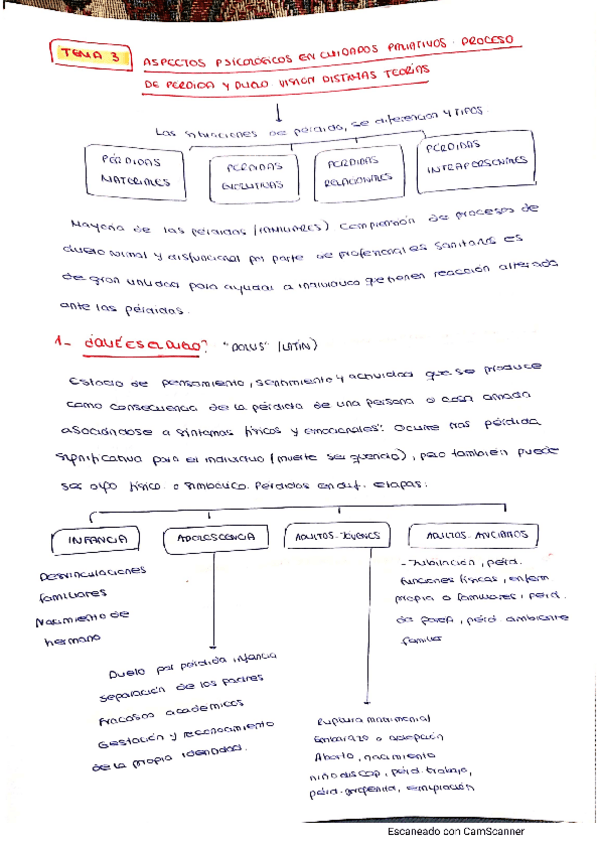 TEMA 3
ASPECTOS PSICOLOGICOS EN CUIDADOS PALIATIVOS. PROCESO
DE PERDIDA Y DUELO VISION DISTINTAS TEORIAS
Las situaciones de pérdida, se diferencian y TIPOS.
PÉRDIDAS MATERIALES
PERDIDAS EVOLUTIVAS
PERDIDAS RELACIONALES
PERDIDAS INTRAPERSONALES
Mayoria de las pérdidas (FAMILIARES) comprensión de procesos de
duelo normal y disfuncional por parte de profesionales sanitarios es
de gran utilidad para ayudar a individuos que tienen reacción alterada
ante las pérdidas.
1- ¿QUÉ ES EL DUELO? "DOLUS" (LATÍN)
Estado de pensamiento, sentimiento y actividad que se produce
como consecuencia de la pérdida de una persona o cosa amada
asociándose a síntomas físicos y emocionales. Ocurre tras pérdida
significativa para el individuo (muerte ser querido), pero también puede
ser tipo físico o simbólico. Pérdidas en dif. etapas:
INFANCIA
ADOLESCENCIA
ADULTOS JOVENES
ADULTOS ANCIANOS
Desvinculaciones
familiares
Nacimiento de
hermano
Duelo por pérdida infancia
separación de los padres
Fracasos académicos
Gestación y reconocimiento
de la propia identidad.
Ruptura matrimonial
Embarazo o adopción
Aborto, nacimiento
niño discap, pérd. trabajo,
pérd. , emigración
- Jubilación, pérd.
funciones físicas, enferm
propia o familiares, pérd.
de pareja, pérd ambiente
familiar
Escaneado con CamScanner